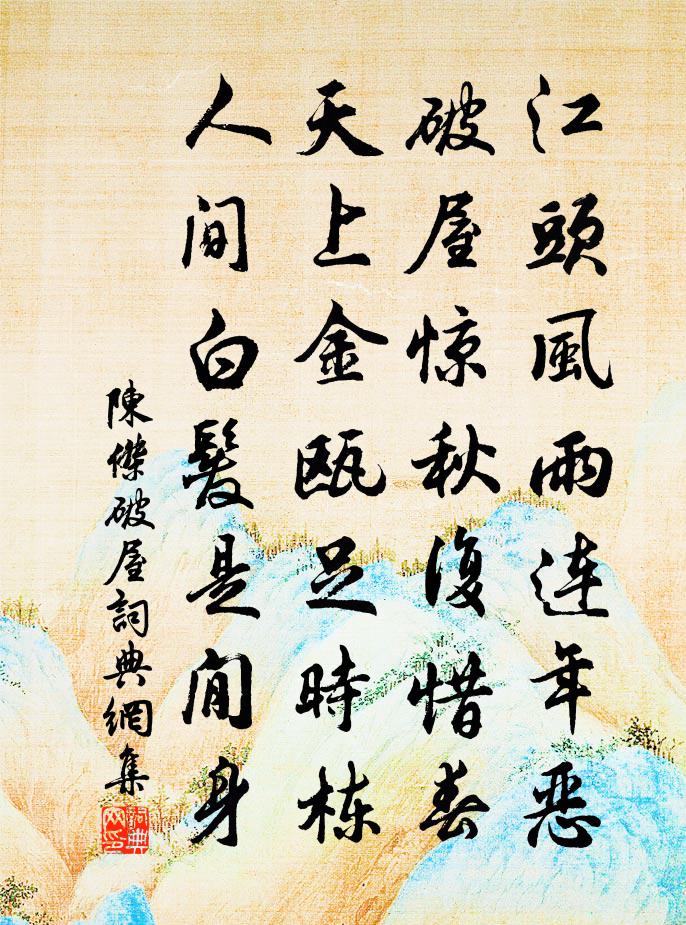 江頭風雨连年恶
破屋惊秋復惜春
天上金瓯足時栋
人間白髮是閒身
陳傑破屋詞典網集
詞典网印